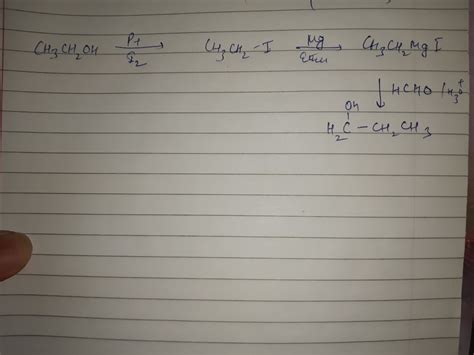 CH3CH2OH P+ I2 → CH3CH2-I Mg Ether → CH3CH2MgI
↓ HCHO / H3O+
OH
H2C - CH2CH3